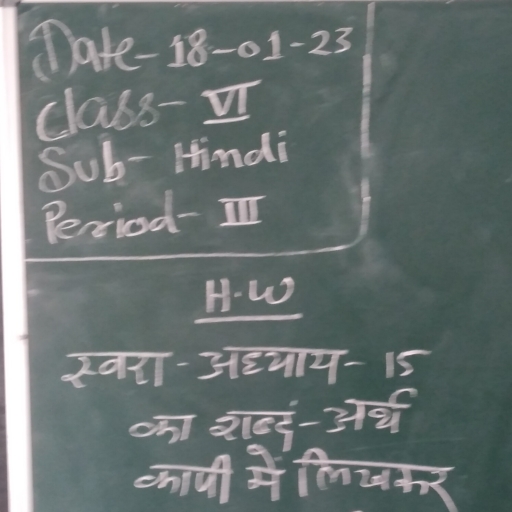 Date- 18-01-23
Class- VI
Sub- Hindi
Period- III
H.W
स्वरा - अध्याय - 15
का शब्द - अर्थ
कापी में लिखकर